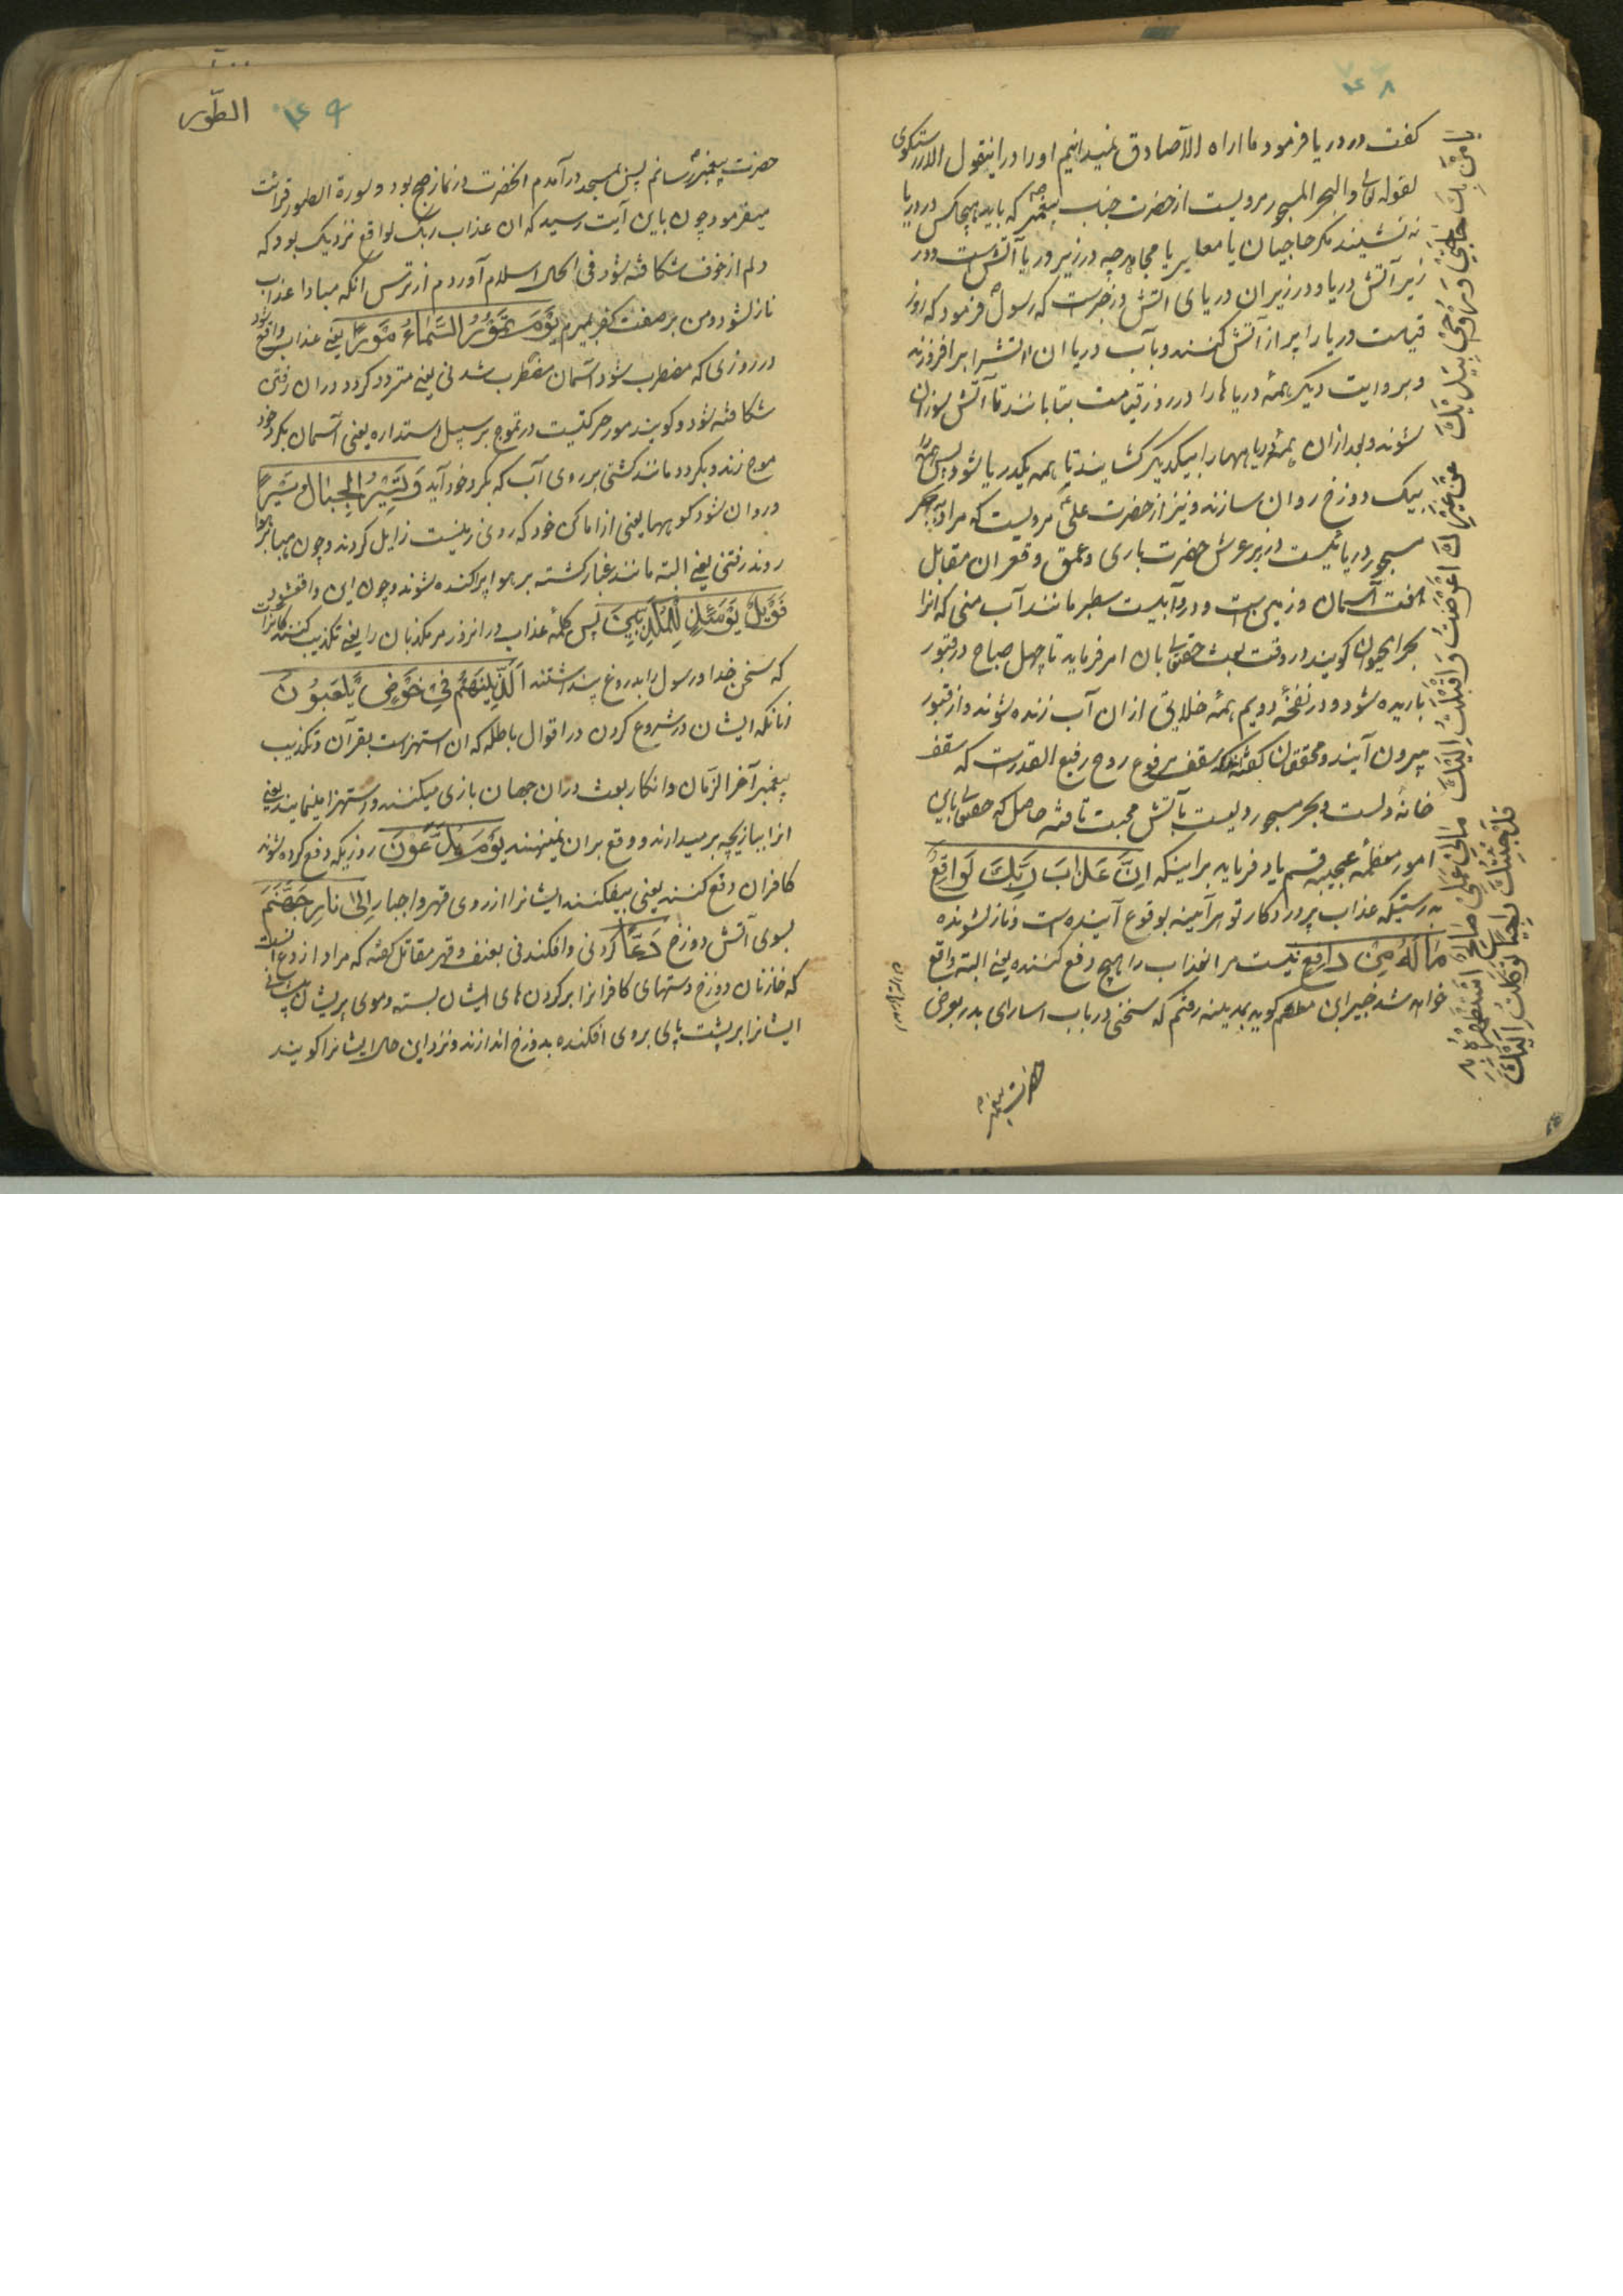 ۷۴۸
کفت در دریا فرمود ما اراه الا صادق نمیدانیم او را درینقول الا راستکوی
لقوله تعالی والبحر المسجور مرویست از حضرت جناب پیغمبر که باید هیچکس در دریا
نه نشیند مکر حاجیان یا معابر یا مجاهد چه در زیر دریا آتش است و در
زیر آتش دریا و در زیر ان دریای اتش و در خبرست که رسول فرمود که روز
قیامت دریا را پر از آتش کنند و بآب دریا ان اتش را برافروزند
و بروایت دیکر همۀ دریاها را در روز قیامت بتابانند تا آتش سوزان
شوند و بعد ازان همۀ دریاهها را بیکدیکر کشایند تا همه یکدریا شود پس
بیک دوزخ روان سازند و نیز از حضرت علی مرویست که مراد به بحر
مسجور دریائیست در زیر عرش حضرت باری و عمق و قعر ان مقابل
هفت آسمان و زمین ست و در وآبیست سطبر مانند آب منی که انرا
بحر الحیوان کویند در وقت بعث حقتعالی بان امر فرماید تا چهل صباح در قبور
باریده شود و در نفخۀ دویم همۀ خلایق ازان آب زنده شوند و از قبور
بیرون آیند و محققان کفته‌اند که سقف مرفوع روح رفیع القدرست که سقف
خانۀ دلست و بحر مسجور دلیست بآتش محبت تافته حاصل که حقتعالی باین
امور معظمۀ عجیبه قسم یاد فرماید بر اینکه اِنَّ عَذَابَ رَبِّكَ لَوَاقِعٌ
بدرستیکه عذاب پروردکار تو هر آیینه بوقوع آینده ست و نازل شونده
مَالَهُ مِنْ دَافِعٍ نیست مر انعذاب را هیچ دفع کننده یعنی البته واقع
خواهد شد جبیر ابن مطعم کوید بمدینه رفتم که سخنی در باب اسارای بدر بعرض
حضرت پیغمبر
یا مَنْ بِكَ حَاجَتِي وَ رُوحِي بِيَدَيْكَ عَنْ غَيْرِكَ اَعْرَضْتُ وَ اَقْبَلْتُ اِلَيْكَ
مَالِي عَمَلٌ صَالِحٌ اَسْتَظْهِرُ بِهِ
قَدْ جِئْتُكَ رَاجِيًا تَوَكَّلْتُ اِلَيْكَ
۷۴۹
الطّور
حضرت پیغمبر رسانم پس بمسجد در آمدم انحضرت در نماز صبح بود و سورة الطور قرائت
میفرمود چون باین آیت رسید که ان عذاب ربک لواقع نزدیک بود که
دلم از خوف شکافته شود فی الحال اسلام آوردم از ترس انکه مبادا عذاب
نازل شود و من بر صفت کفر بمیرم يَوْمَ تَمُوْرُ السَّمَاءُ مَوْرًا یعنی عذاب واقع شود
در روزی که مضطرب شود آسمان مضطرب شدنی یعنی متردد کردد در ان رفتن
شکافته شود و کویند مور حرکتیست در تموج بر سبیل استداره یعنی آسمان بکرد خود
موج زند و بکردد مانند کشتی بر روی آب که بکرد خود آید وَتَسِيْرُ الْجِبَالُ سَيْرًا
و روان شود کوهها یعنی از اماکن خود که روی زمینست زایل کردند و چون هباء در هوا
روند رفتنی یعنی البته مانند غبار کشته بر هوا پراکنده شوند و چون این واقع شود
فَوَيْلٌ يَوْمَئِذٍ لِلْمُكَذِّبِيْنَ پس کلمۀ عذاب در انروز مر مکذبان را یعنی تکذیب کنندکانراست
که سخن خدا و رسول را بدروغ پنداشتند اَلَّذِيْنَ هُمْ فِيْ خَوْضٍ يَّلْعَبُوْنَ
زانانکه ایشان در شروع کردن در اقوال باطله که ان استهزاست بقرآن و تکذیب
پیغمبر آخر الزمان و انکار بعث دران جهان بازی میکنند و استهزا مینمایند یعنی
انرا ببازیچه بر میدارند و وقع بران نمینهند يَوْمَ يُدَعُّوْنَ روزیکه دفع کرده شوند
کافران دفع کنند یعنی بیفکنند ایشانرا از روی قهر و اجبار اِلىٰ نَارِ جَهَنَّمَ
بسوی آتش دوزخ دَعًّا کردنی و افکندنی بعنف و قهر مقاتل کفته که مراد از دع انست
که خازنان دوزخ دستهای کافرانرا بر کردن‌های ایشان بسته و موی پیشانی
ایشانرا بر پشت پای بروی افکنده بدوزخ اندازند و نزد این حال ایشانرا کویند